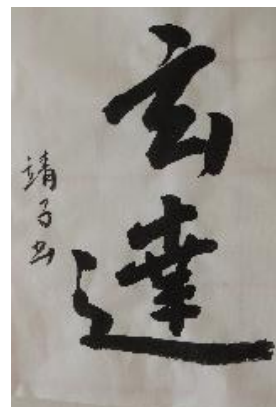 玄達
靖子书